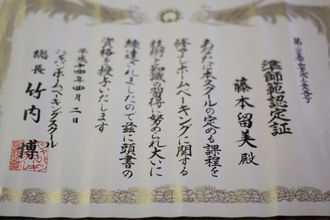 準師範認定証
藤本留美殿
あなたは本スクールの定める課程を
修了しホームベーキングに関する
技術と知識の習得に努められ大いに
練達されましたので茲に頭書の
資格を授与いたします
平成十四年四月二日
ジャパンホームベーキングスクール
総長 竹内 博